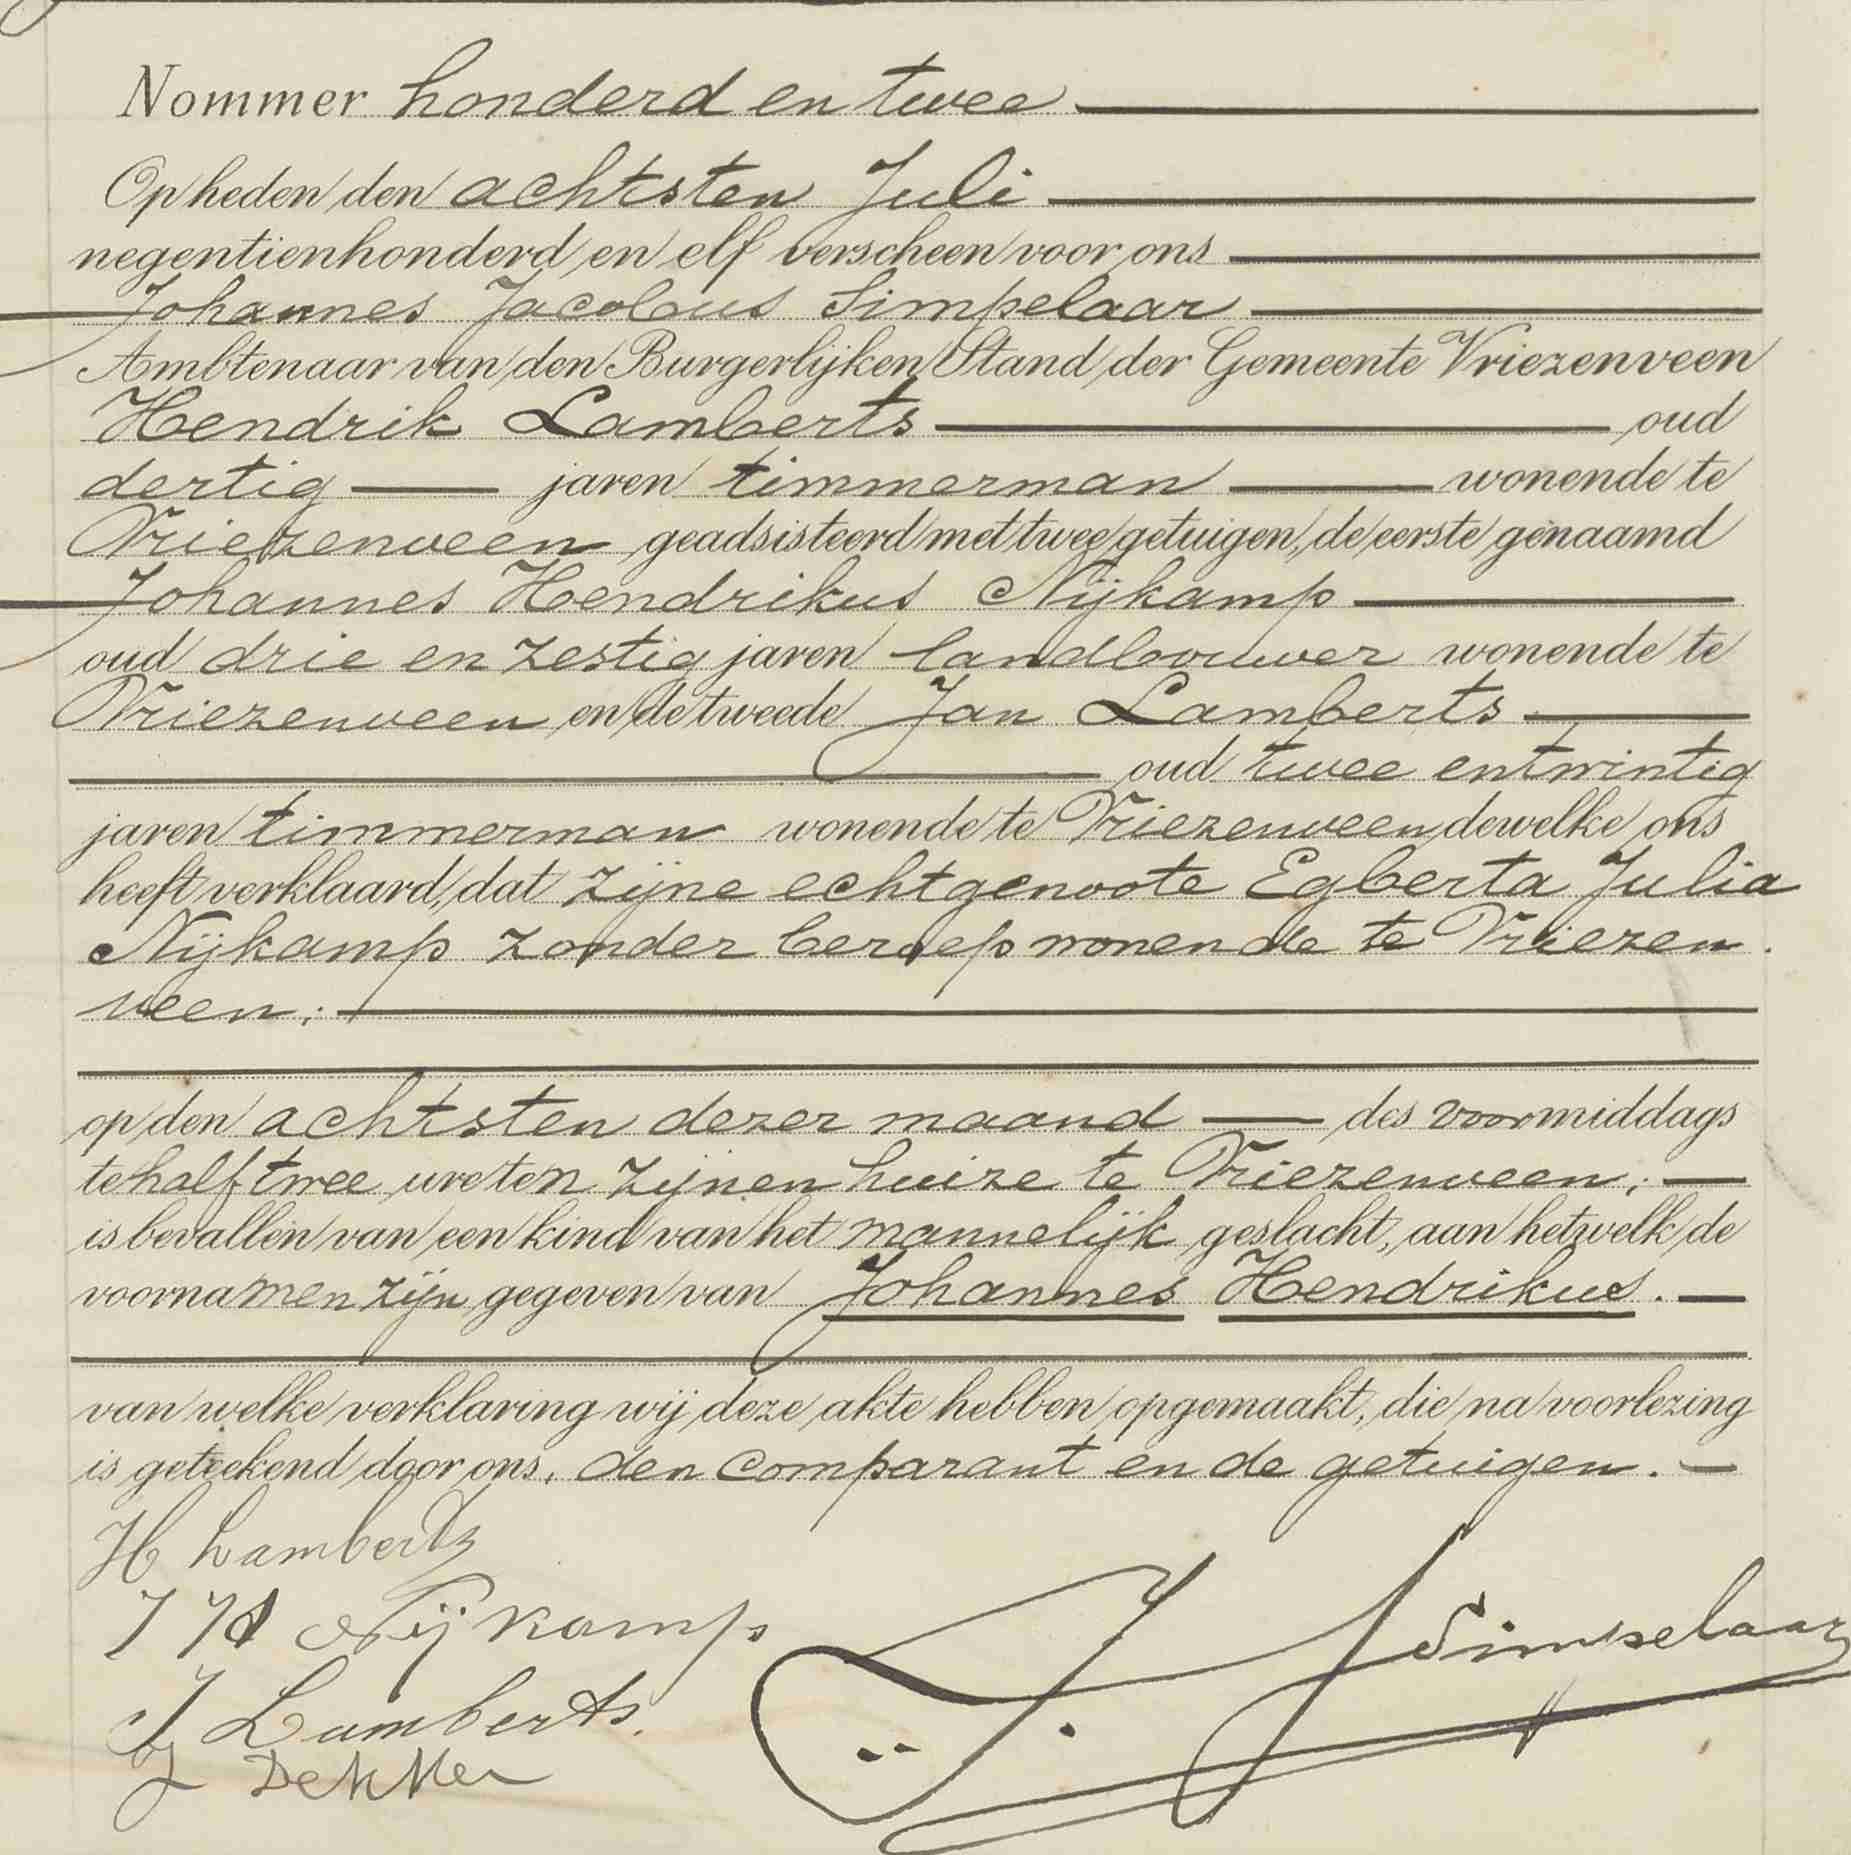 Nommer honderd en twee
Op heden den achtsten Juli
negentienhonderd en elf verscheen voor ons
Johannes Jacobus Simpelaar
Ambtenaar van den Burgerlijken Stand der Gemeente Vriezenveen
Hendrik Lamberts oud
dertig jaren timmerman wonende te
Vriezenveen geadsisteerd met twee getuigen, de eerste genaamd
Johannes Hendrikus Nijkamp
oud drie en zestig jaren landbouwer wonende te
Vriezenveen en de tweede Jan Lamberts
oud twee entwintig
jaren timmerman wonende te Vriezenveen dewelke ons
heeft verklaard, dat zijne echtgenoote Egberta Julia
Nijkamp zonder beroep wonende te Vriezen
veen;
op den achtsten dezer maand des voormiddags
te half twee ure ten zijnen huize te Vriezenveen;
is bevallen van een kind van het mannelijk geslacht, aan hetwelk de
voornamen zijn gegeven van Johannes Hendrikus.
van welke verklaring wij deze akte hebben opgemaakt, die na voorlezing
is geteekend door ons, den comparant en de getuigen.
H Lamberts
J H Nijkamp
J. J. Simpelaar
J Lamberts.
J Dekker